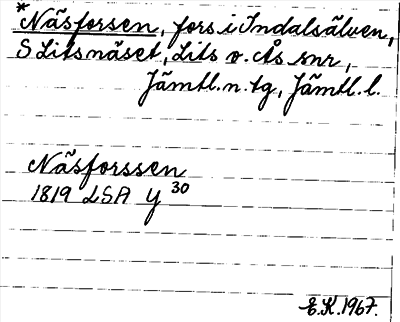 *Näsforsen, fors i Indalsälven,
S Litsnäset, Lits o. Ås snr,
Jämtl. n. tg, Jämtl. l.
Näsforssen
1819 LSA Y 30
E.K. 1967.